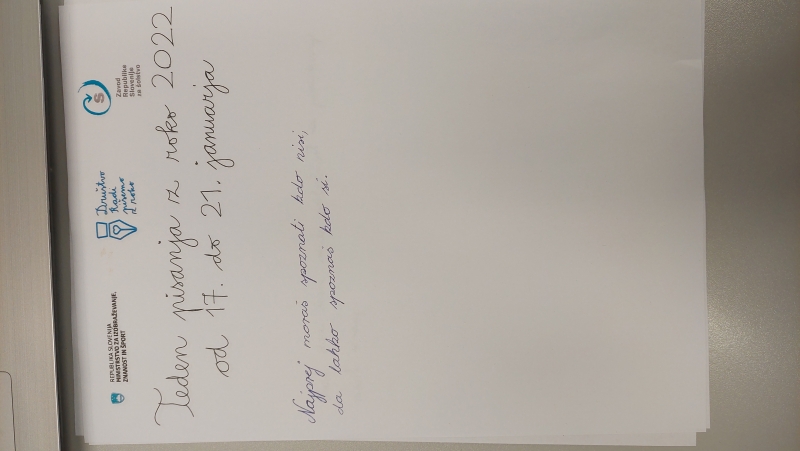 REPUBLIKA SLOVENIJA
MINISTRSTVO ZA IZOBRAŽEVANJE,
ZNANOST IN ŠPORT
Društvo
Radi
pišemo
z roko
Zavod
Republike
Slovenije
za šolstvo
Teden pisanja z roko 2022
od 17. do 21. januarja
Najprej moraš spoznati kdo nisi,
da lahko spoznaš kdo si.